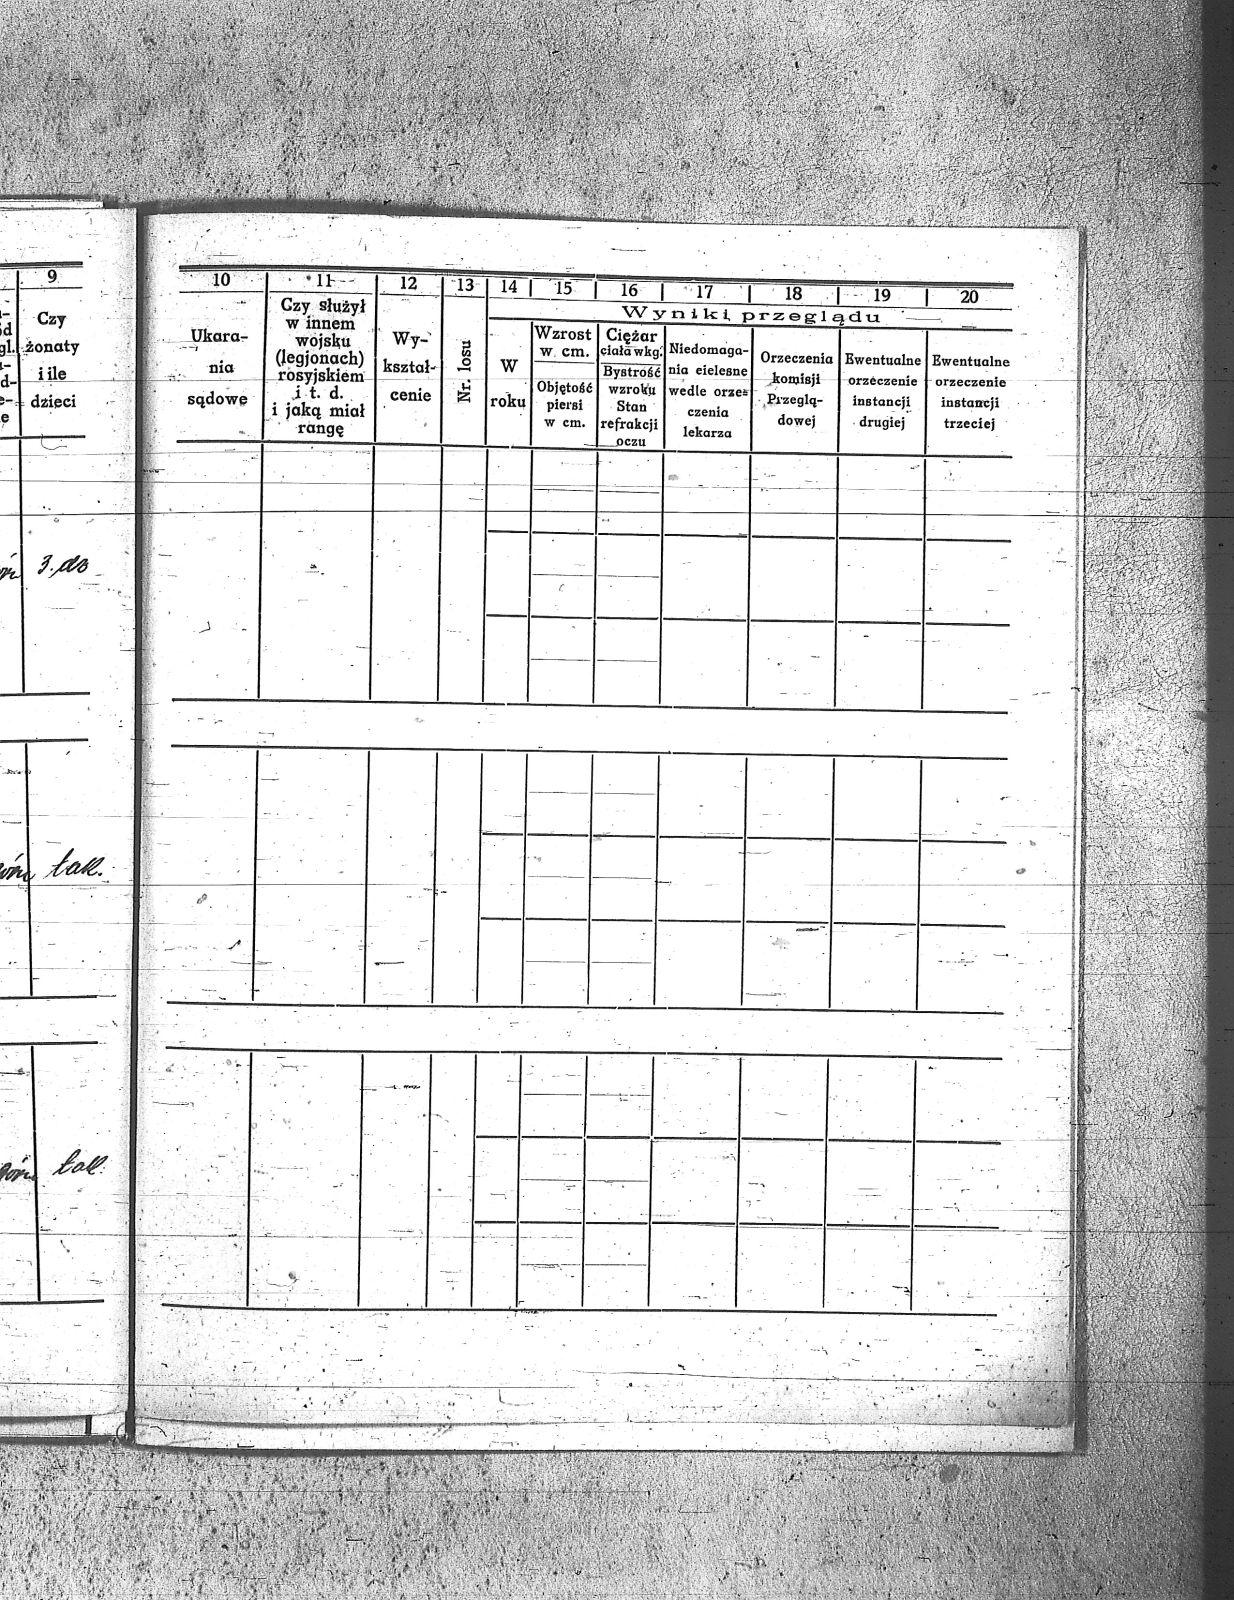 9
Czy
żonaty
i ile
dzieci
3. do
tak.
tak.
10 11 12 13 14 15 16 17 18 19 20
Wyniki przeglądu
Ukara-
nia
sądowe
Czy służył
w innem
wojsku
(legjonach)
rosyjskiem
i t. d.
i jaką miał
rangę
Wy-
kształ-
cenie
Nr. losu
W
roku
Wzrost
w cm.
Objętość
piersi
w cm.
Ciężar
ciała w kg.
Bystrość
wzroku
Stan
refrakcji
oczu
Niedomaga-
nia cielesne
wedle orze-
czenia
lekarza
Orzeczenia
komisji
Przeglą-
dowej
Ewentualne
orzeczenie
instancji
drugiej
Ewentualne
orzeczenie
instancji
trzeciej